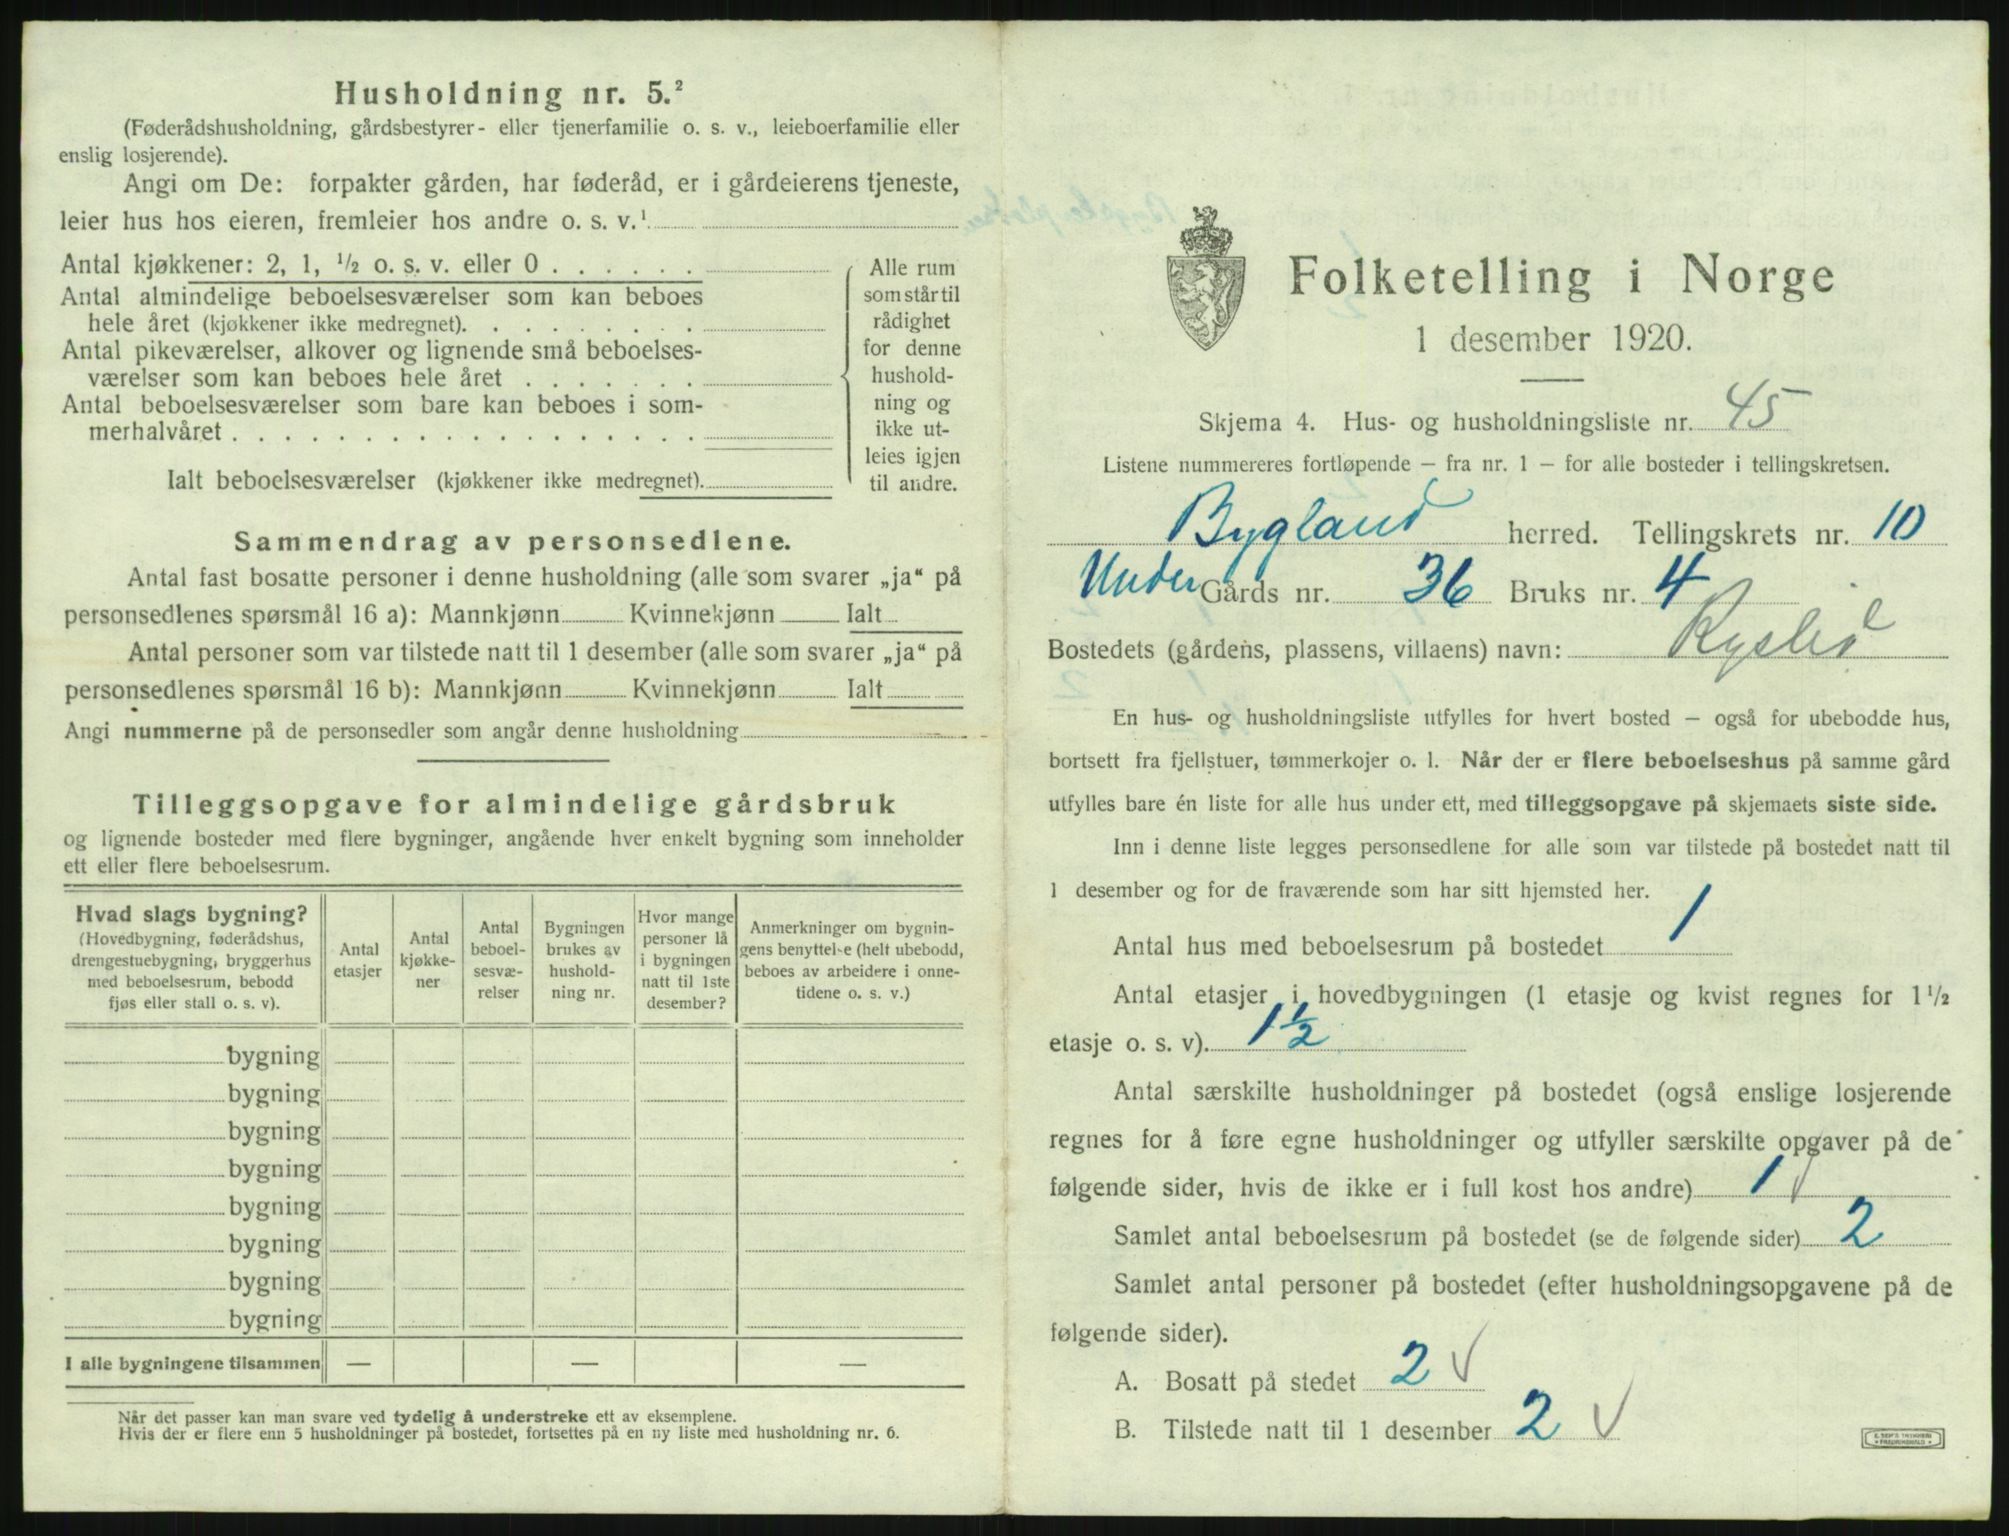 Husholdning nr. 5.²
(Føderådshusholdning, gårdsbestyrer- eller tjenerfamilie o. s. v., leieboerfamilie eller
enslig losjerende).
Angi om De: forpakter gården, har føderåd, er i gårdeierens tjeneste,
leier hus hos eieren, fremleier hos andre o. s. v.¹
Antal kjøkkener: 2, 1, ½ o. s. v. eller 0
Antal almindelige beboelsesværelser som kan beboes
hele året (kjøkkener ikke medregnet).
Antal pikeværelser, alkover og lignende små beboelses-
værelser som kan beboes hele året
Antal beboelsesværelser som bare kan beboes i som-
merhalvåret
Ialt beboelsesværelser (kjøkkener ikke medregnet).
Alle rum
som står til
rådighet
for denne
hushold-
ning og
ikke ut-
leies igjen
til andre.
Sammendrag av personsedlene.
Antal fast bosatte personer i denne husholdning (alle som svarer „ja“ på
personsedlenes spørsmål 16 a): Mannkjønn Kvinnekjønn Ialt
Antal personer som var tilstede natt til 1 desember (alle som svarer „ja“ på
personsedlenes spørsmål 16 b): Mannkjønn Kvinnekjønn Ialt
Angi nummerne på de personsedler som angår denne husholdning
Tilleggsopgave for almindelige gårdsbruk
og lignende bosteder med flere bygninger, angående hver enkelt bygning som inneholder
ett eller flere beboelsesrum.
Hvad slags bygning?
(Hovedbygning, føderådshus,
drengestuebygning, bryggerhus
med beboelsesrum, bebodd
fjøs eller stall o. s. v).
Antal
etasjer
Antal
kjøkke-
ner
Antal
beboel-
sesvæ-
relser
Bygningen
brukes av
hushold-
ning nr.
Hvor mange
personer lå
i bygningen
natt til 1ste
desember?
Anmerkninger om bygnin-
gens benyttelse (helt ubebodd,
beboes av arbeidere i onne-
tidene o. s. v.)
bygning
bygning
bygning
bygning
bygning
bygning
bygning
bygning
I alle bygningene tilsammen — — —
Når det passer kan man svare ved tydelig å understreke ett av eksemplene.
Hvis der er flere enn 5 husholdninger på bostedet, fortsettes på en ny liste med husholdning nr. 6.
Folketelling i Norge
1 desember 1920.
Skjema 4. Hus- og husholdningsliste nr. 45
Listene nummereres fortløpende – fra nr. 1 – for alle bosteder i tellingskretsen.
Bygland herred. Tellingskrets nr. 10
Under Gårds nr. 36 Bruks nr. 4
Bostedets (gårdens, plassens, villaens) navn: Rysled
En hus- og husholdningsliste utfylles for hvert bosted – også for ubebodde hus,
bortsett fra fjellstuer, tømmerkojer o. l. Når der er flere beboelseshus på samme gård
utfylles bare én liste for alle hus under ett, med tilleggsopgave på skjemaets siste side.
Inn i denne liste legges personsedlene for alle som var tilstede på bostedet natt til
1 desember og for de fraværende som har sitt hjemsted her.
Antal hus med beboelsesrum på bostedet 1
Antal etasjer i hovedbygningen (1 etasje og kvist regnes for 1½
etasje o. s. v). 1½
Antal særskilte husholdninger på bostedet (også enslige losjerende
regnes for å føre egne husholdninger og utfyller særskilte opgaver på de
følgende sider, hvis de ikke er i full kost hos andre) 1 √
Samlet antal beboelsesrum på bostedet (se de følgende sider) 2
Samlet antal personer på bostedet (efter husholdningsopgavene på de
følgende sider).
A. Bosatt på stedet 2 √
B. Tilstede natt til 1 desember 2 √